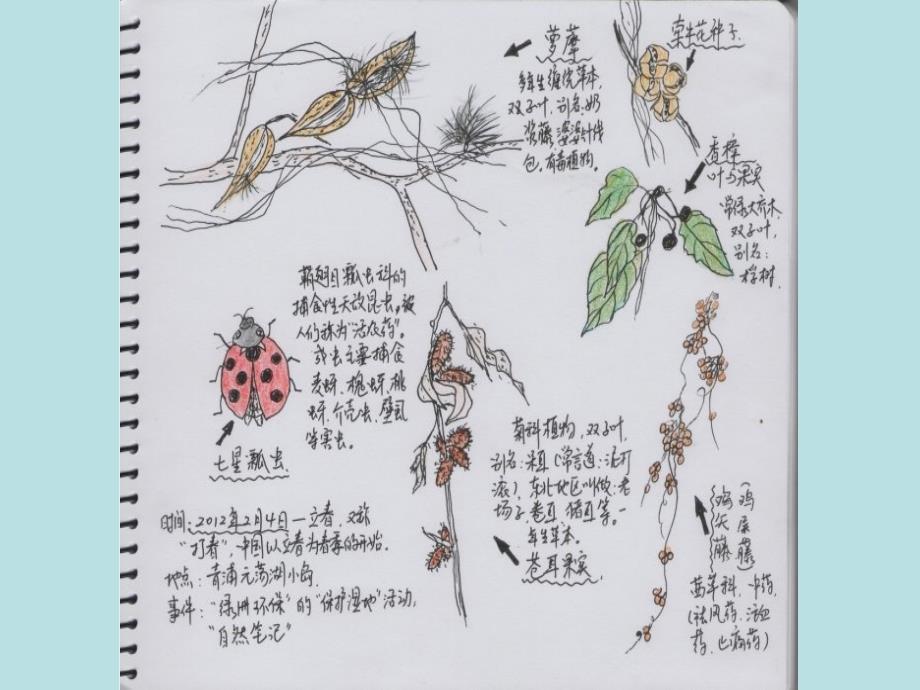 萝藦
多年生缠绕草本，
双子叶，别名：奶
浆藤 婆婆针线
包，有毒植物。
牵牛花种子
香樟
叶与果实
常绿大乔木，
双子叶，
别名：
樟树
鞘翅目瓢虫科的
捕食性天敌昆虫，被
人们称为"活农药"。
成虫主要捕食
麦蚜、槐蚜、桃
蚜、介壳虫、壁虱
等害虫。
七星瓢虫
菊科植物，双子叶，
别名：
东北地区叫做：老
场子、苍耳、猪耳等。一
年生草本。
苍耳果实
鸡矢藤
（鸡屎藤）
茜草科，中药
（祛风药、活血
药、止痛药）
时间：2012年2月4日—立春，又称
"打春"，中国以立春为春季的开始。
地点：青浦元荡湖小岛
事件："绿洲环保"的"保护湿地"活动，
"自然笔记"